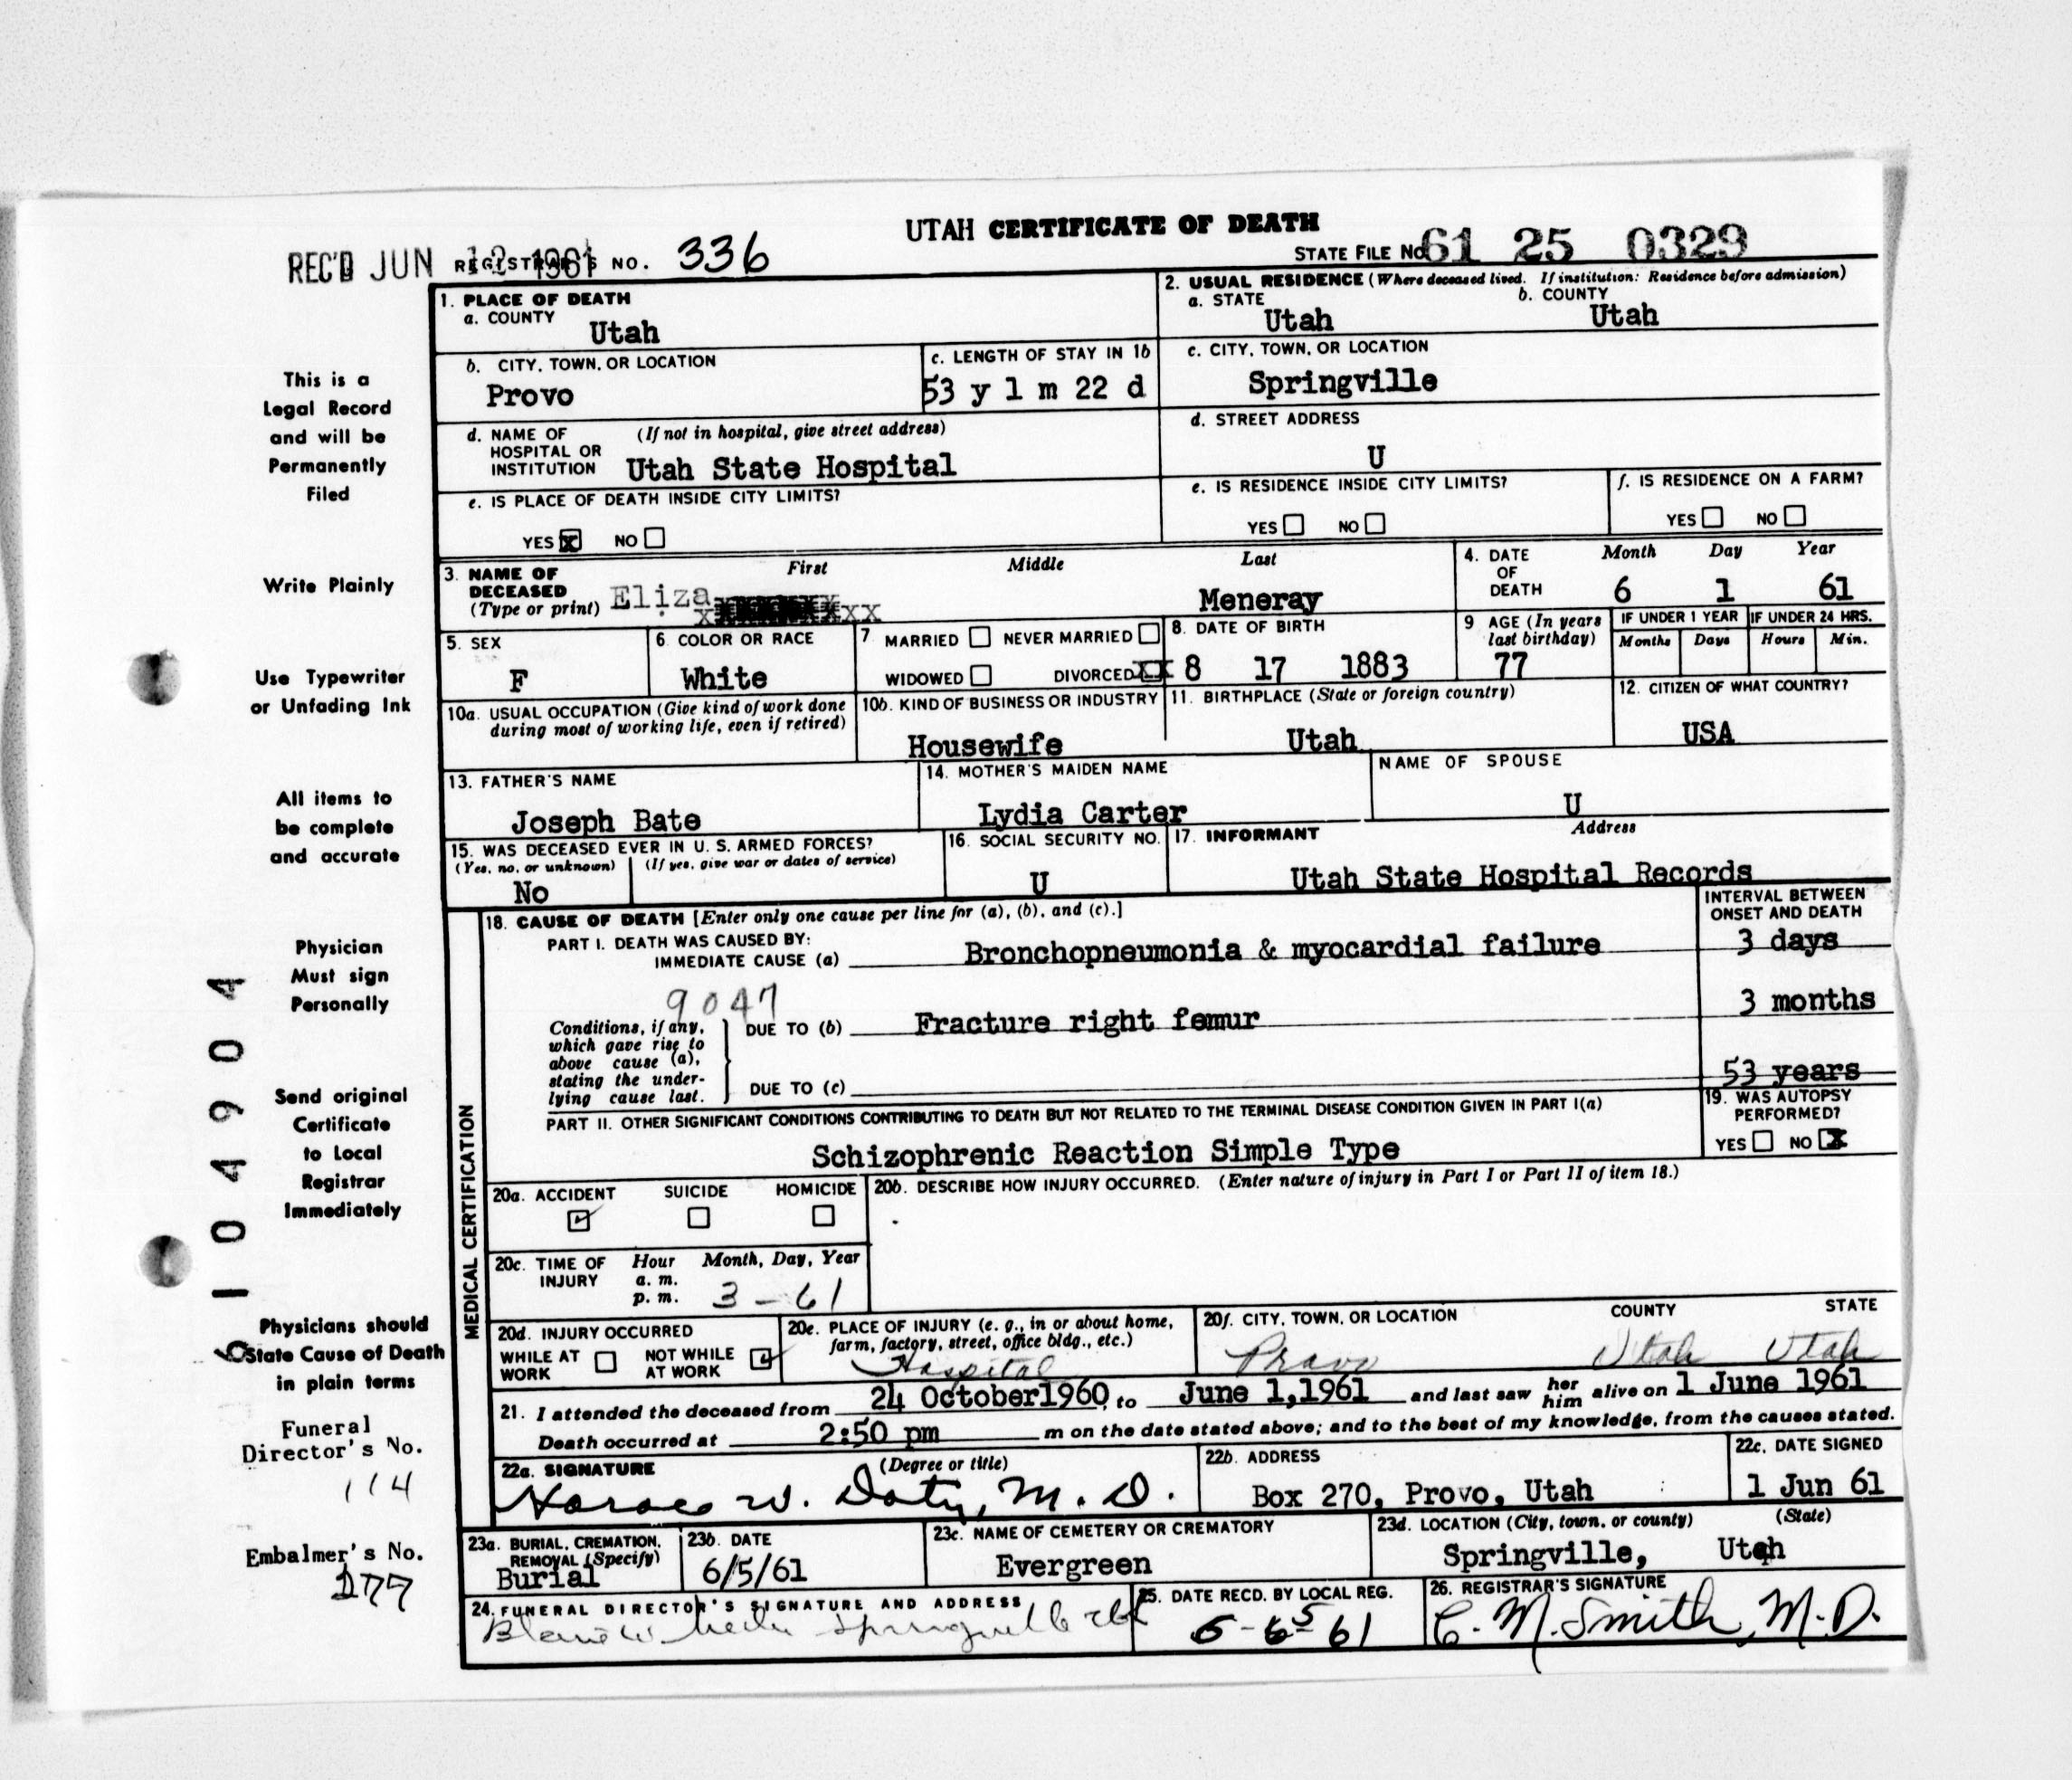 UTAH CERTIFICATE OF DEATH
REC'D JUN 12 1961 REGISTRAR'S NO. 336
STATE FILE NO. 61 25 0329
1. PLACE OF DEATH
a. COUNTY
Utah
2. USUAL RESIDENCE (Where deceased lived. If institution: Residence before admission)
a. STATE b. COUNTY
Utah Utah
b. CITY, TOWN, OR LOCATION
Provo
c. LENGTH OF STAY IN 1b
53 y 1 m 22 d
c. CITY, TOWN, OR LOCATION
Springville
d. NAME OF HOSPITAL OR INSTITUTION (If not in hospital, give street address)
Utah State Hospital
d. STREET ADDRESS
U
e. IS PLACE OF DEATH INSIDE CITY LIMITS?
YES X NO
e. IS RESIDENCE INSIDE CITY LIMITS?
YES NO
f. IS RESIDENCE ON A FARM?
YES NO
3. NAME OF DECEASED (Type or print)
First Middle Last
Eliza Meneray
4. DATE OF DEATH
Month Day Year
6 1 61
5. SEX
F
6. COLOR OR RACE
White
7 MARRIED NEVER MARRIED
WIDOWED DIVORCED XX
8. DATE OF BIRTH
8 17 1883
9 AGE (In years last birthday)
77
IF UNDER 1 YEAR IF UNDER 24 HRS.
Months Days Hours Min.
10a. USUAL OCCUPATION (Give kind of work done during most of working life, even if retired)
10b. KIND OF BUSINESS OR INDUSTRY
Housewife
11. BIRTHPLACE (State or foreign country)
Utah
12. CITIZEN OF WHAT COUNTRY?
USA
13. FATHER'S NAME
Joseph Bate
14. MOTHER'S MAIDEN NAME
Lydia Carter
NAME OF SPOUSE
U
15. WAS DECEASED EVER IN U. S. ARMED FORCES?
(Yes, no, or unknown) (If yes, give war or dates of service)
No
16. SOCIAL SECURITY NO.
U
17. INFORMANT Address
Utah State Hospital Records
MEDICAL CERTIFICATION
18. CAUSE OF DEATH [Enter only one cause per line for (a), (b), and (c).]
INTERVAL BETWEEN ONSET AND DEATH
PART I. DEATH WAS CAUSED BY:
IMMEDIATE CAUSE (a) Bronchopneumonia & myocardial failure
3 days
9047
Conditions, if any, which gave rise to above cause (a), stating the underlying cause last.
DUE TO (b) Fracture right femur
3 months
DUE TO (c)
53 years
PART II. OTHER SIGNIFICANT CONDITIONS CONTRIBUTING TO DEATH BUT NOT RELATED TO THE TERMINAL DISEASE CONDITION GIVEN IN PART I(a)
Schizophrenic Reaction Simple Type
19. WAS AUTOPSY PERFORMED?
YES NO X
20a. ACCIDENT SUICIDE HOMICIDE
20b. DESCRIBE HOW INJURY OCCURRED. (Enter nature of injury in Part I or Part II of item 18.)
20c. TIME OF INJURY
Hour Month, Day, Year
a. m.
p. m. 3 - 61
20d. INJURY OCCURRED
WHILE AT WORK NOT WHILE AT WORK
20e. PLACE OF INJURY (e. g., in or about home, farm, factory, street, office bldg., etc.)
Hospital
20f. CITY, TOWN, OR LOCATION COUNTY STATE
Provo Utah Utah
21. I attended the deceased from 24 October1960, to June 1,1961 and last saw her him alive on 1 June 1961
Death occurred at 2:50 pm m on the date stated above; and to the best of my knowledge, from the causes stated.
22a. SIGNATURE (Degree or title)
Horace W. Doty, M. D.
22b. ADDRESS
Box 270, Provo, Utah
22c. DATE SIGNED
1 Jun 61
23a. BURIAL, CREMATION, REMOVAL (Specify)
Burial
23b. DATE
6/5/61
23c. NAME OF CEMETERY OR CREMATORY
Evergreen
23d. LOCATION (City, town, or county) (State)
Springville, Utah
24. FUNERAL DIRECTOR'S SIGNATURE AND ADDRESS
Springville
25. DATE RECD. BY LOCAL REG.
26. REGISTRAR'S SIGNATURE
C. M. Smith, M. D.
This is a
Legal Record
and will be
Permanently
Filed
Write Plainly
Use Typewriter
or Unfading Ink
All items to
be complete
and accurate
Physician
Must sign
Personally
Send original
Certificate
to Local
Registrar
Immediately
Physicians should
State Cause of Death
in plain terms
Funeral
Director's No.
114
Embalmer's No.
277
104904